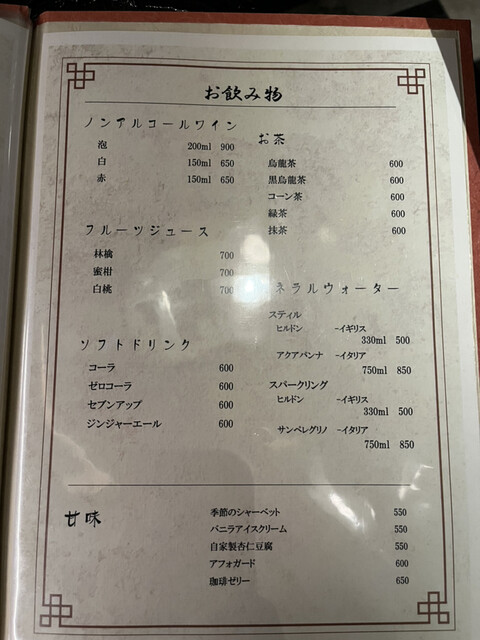 お飲み物
ノンアルコールワイン
泡 200ml 900
白 150ml 650
赤 150ml 650
フルーツジュース
林檎 700
蜜柑 700
白桃 700
ソフトドリンク
コーラ 600
ゼロコーラ 600
セブンアップ 600
ジンジャーエール 600
お茶
烏龍茶 600
黒烏龍茶 600
コーン茶 600
緑茶 600
抹茶 600
ネラルウォーター
スティル
ヒルドン -イギリス
330ml 500
アクアパンナ -イタリア
750ml 850
スパークリング
ヒルドン -イギリス
330ml 500
サンペレグリノ -イタリア
750ml 850
甘味
季節のシャーベット 550
バニラアイスクリーム 550
自家製杏仁豆腐 550
アフォガード 600
珈琲ゼリー 650